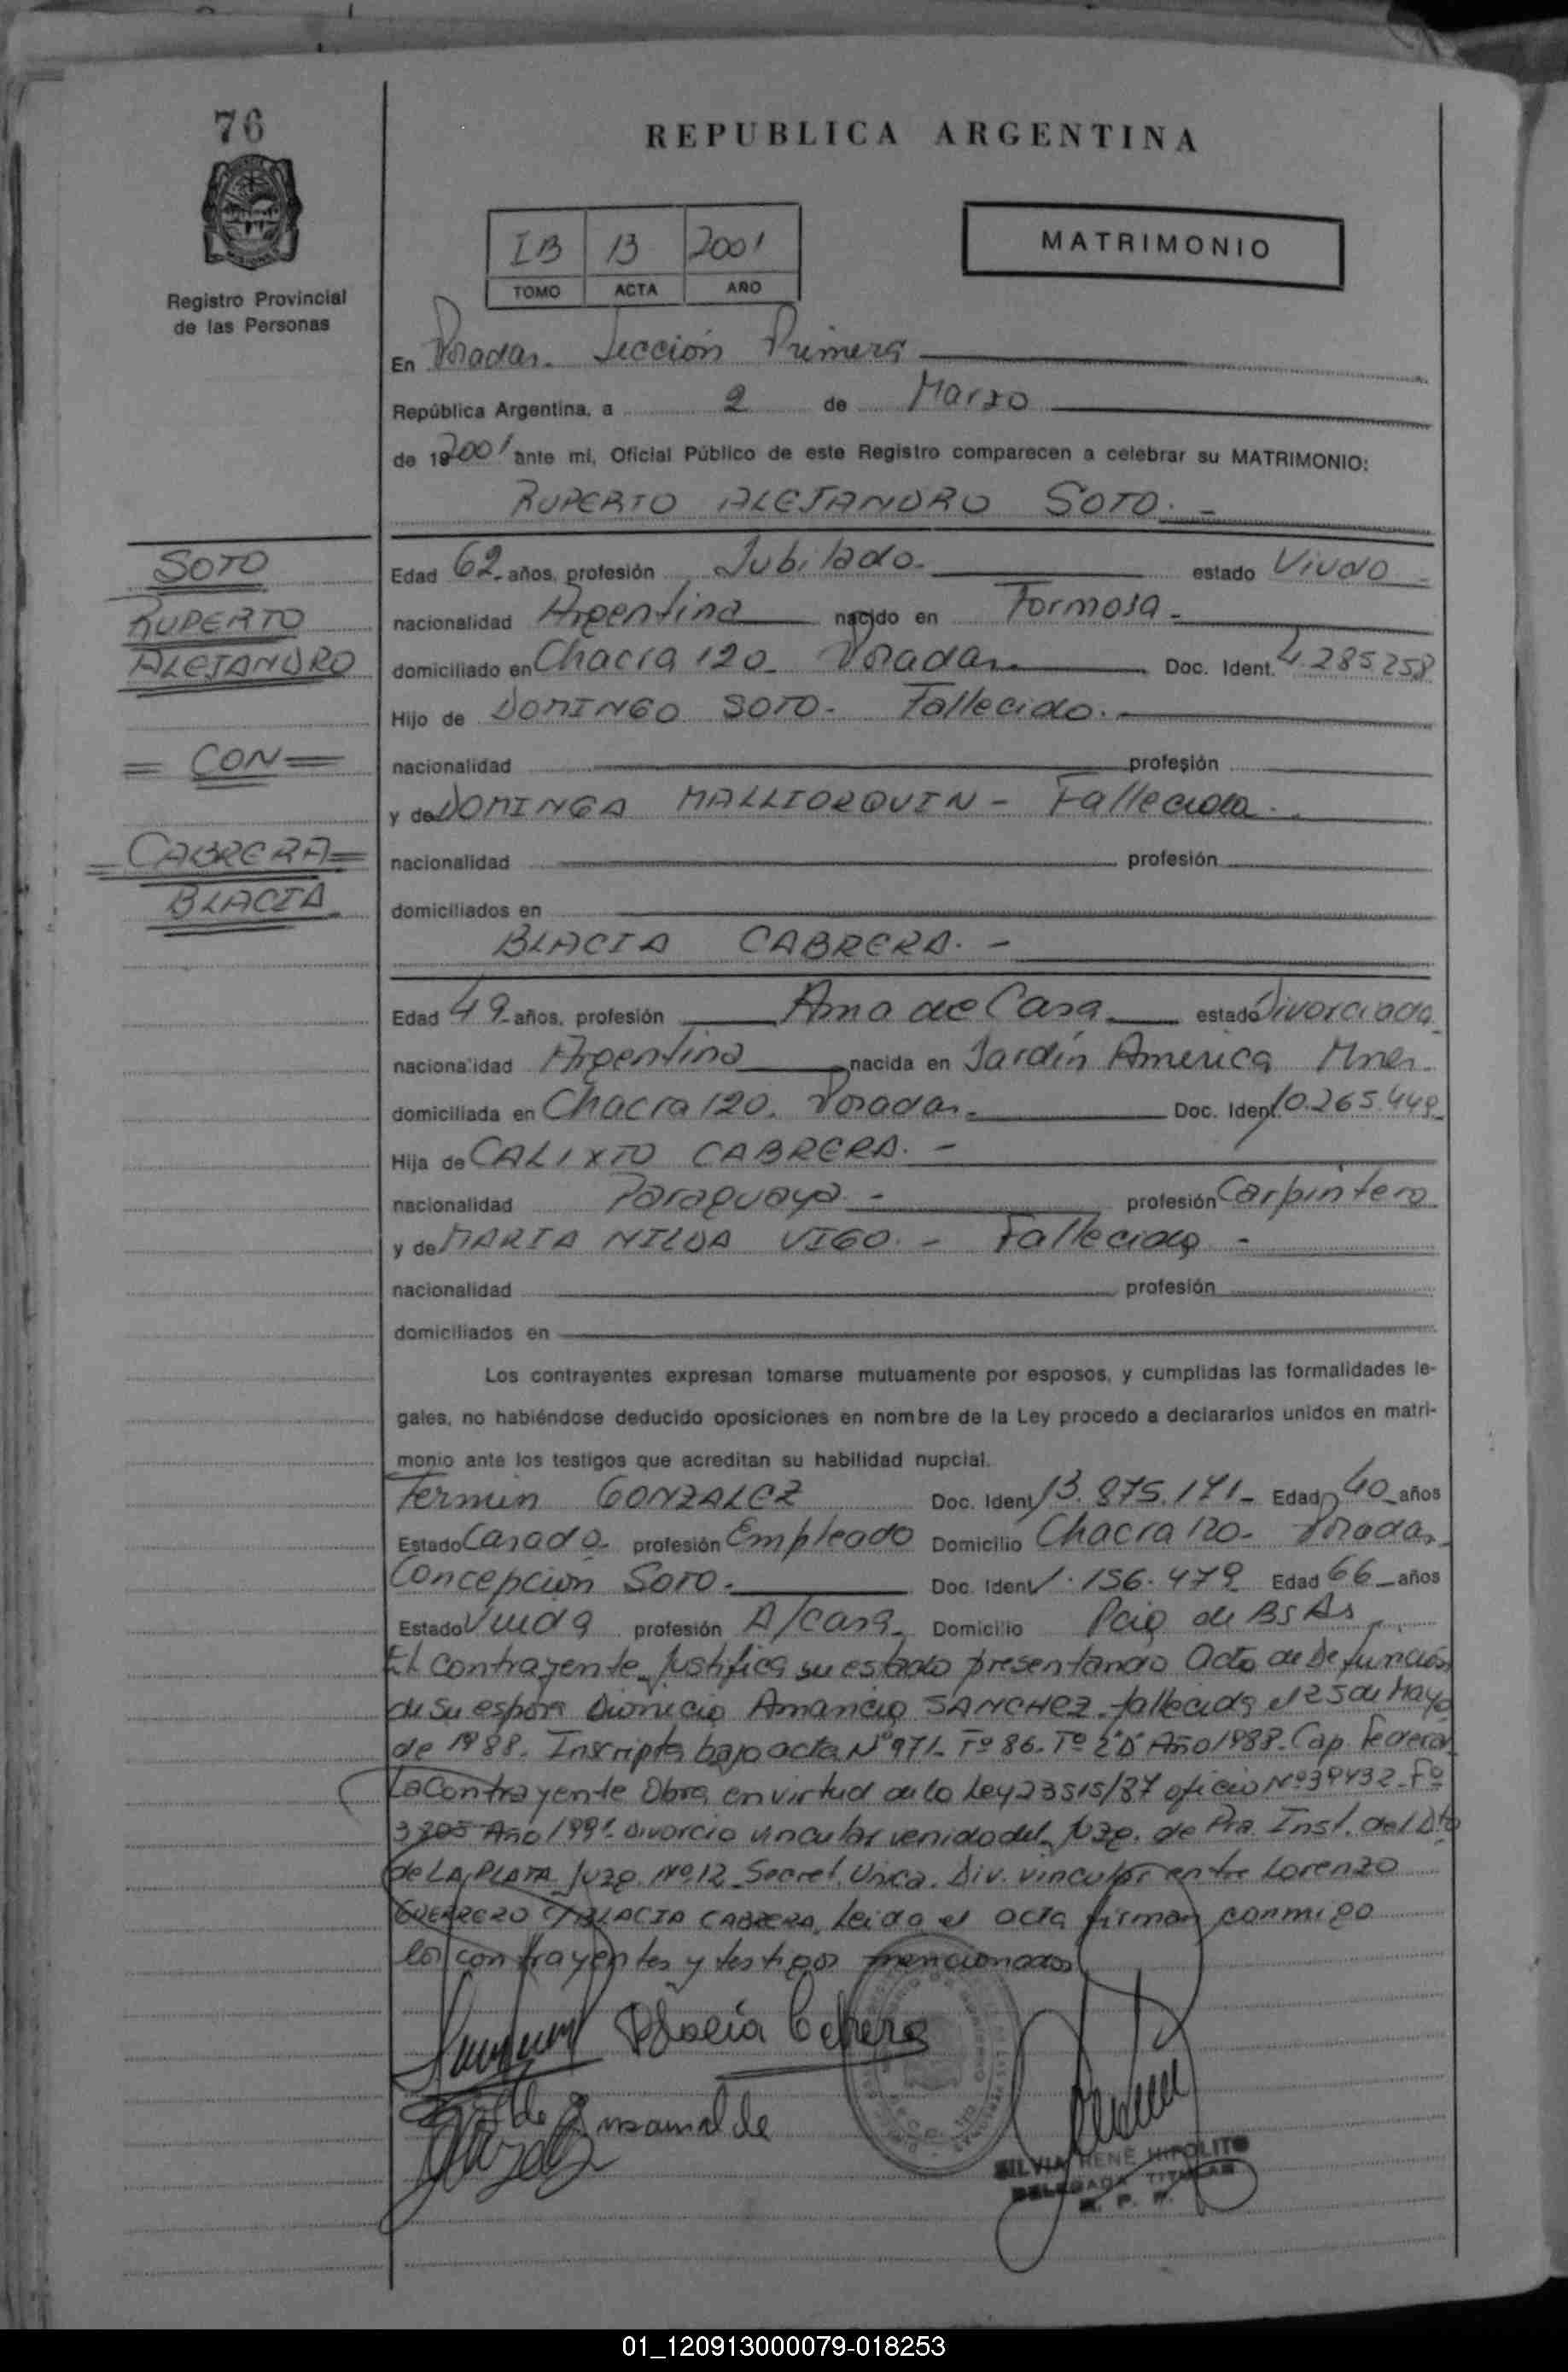 76
REPUBLICA ARGENTINA
IB 13 2001
TOMO ACTA AÑO
MATRIMONIO
Registro Provincial
de las Personas
En Posadas. Sección Primera
República Argentina, a 2 de Marzo
de 192001 ante mi, Oficial Público de este Registro comparecen a celebrar su MATRIMONIO:
RUPERTO ALEJANDRO SOTO. -
SOTO
RUPERTO
ALEJANDRO
= CON =
CABRERA =
BLACIA
Edad 62 años, profesión Jubilado. estado Viudo
nacionalidad Argentina nacido en Formosa
domiciliado en Chacra 120 Posadas. Doc. Ident. 4.285.258
Hijo de DOMINGO SOTO - Fallecido. -
nacionalidad profesión
y de DOMINGA MALLIORQUIN - Fallecida.
nacionalidad profesión
domiciliados en
BLACIA CABRERA. -
Edad 49 años, profesión Ama de Casa estado Divorciada
nacionalidad Argentina nacida en Jardín America Mnes.
domiciliada en Chacra 120. Posadas. Doc. Ident. 10.265.448
Hija de CALIXTO CABRERA. -
nacionalidad Paraguaya - profesión Carpintero
y de MARIA NILDA VIGO. - Fallecida -
nacionalidad profesión
domiciliados en
Los contrayentes expresan tomarse mutuamente por esposos, y cumplidas las formalidades le-
gales, no habiéndose deducido oposiciones en nombre de la Ley procedo a declararlos unidos en matri-
monio ante los testigos que acreditan su habilidad nupcial.
Fermin GONZALEZ Doc. Ident. 13.875.171 - Edad 40 años
Estado Casado profesión Empleado Domicilio Chacra 120 - Posadas
Concepción SOTO. Doc. Ident. 1.156.479 Edad 66 años
Estado Viuda profesión A/casa Domicilio Pcia de BsAs
El contrayente justifica su estado presentando Acta de Defunción
de su esposa Dionicia Amancia SANCHEZ fallecida el 25 de Mayo
de 1988. Inscripta bajo acta Nº 971 - Fº 86 - Tº 2"D" Año 1988 - Cap. Federal
La Contrayente Obra en virtud de la Ley 23515/87 oficio Nº 39432 - Fº
3205 Año 1991. Divorcio vincular venido del Juzg. de Pra. Inst. del Dto
de LA PLATA Juzg. Nº 12 Secret. Unica. Div. vincular entre Lorenzo
GUERRERO C/ BLACIA CABRERA. Leida el acta firman conmigo
los contrayentes y testigos mencionados
Blacia Cabrera
SILVIA RENE HIPOLITO
DELEGADA TITULAR
R. P. P.
01_120913000079-018253